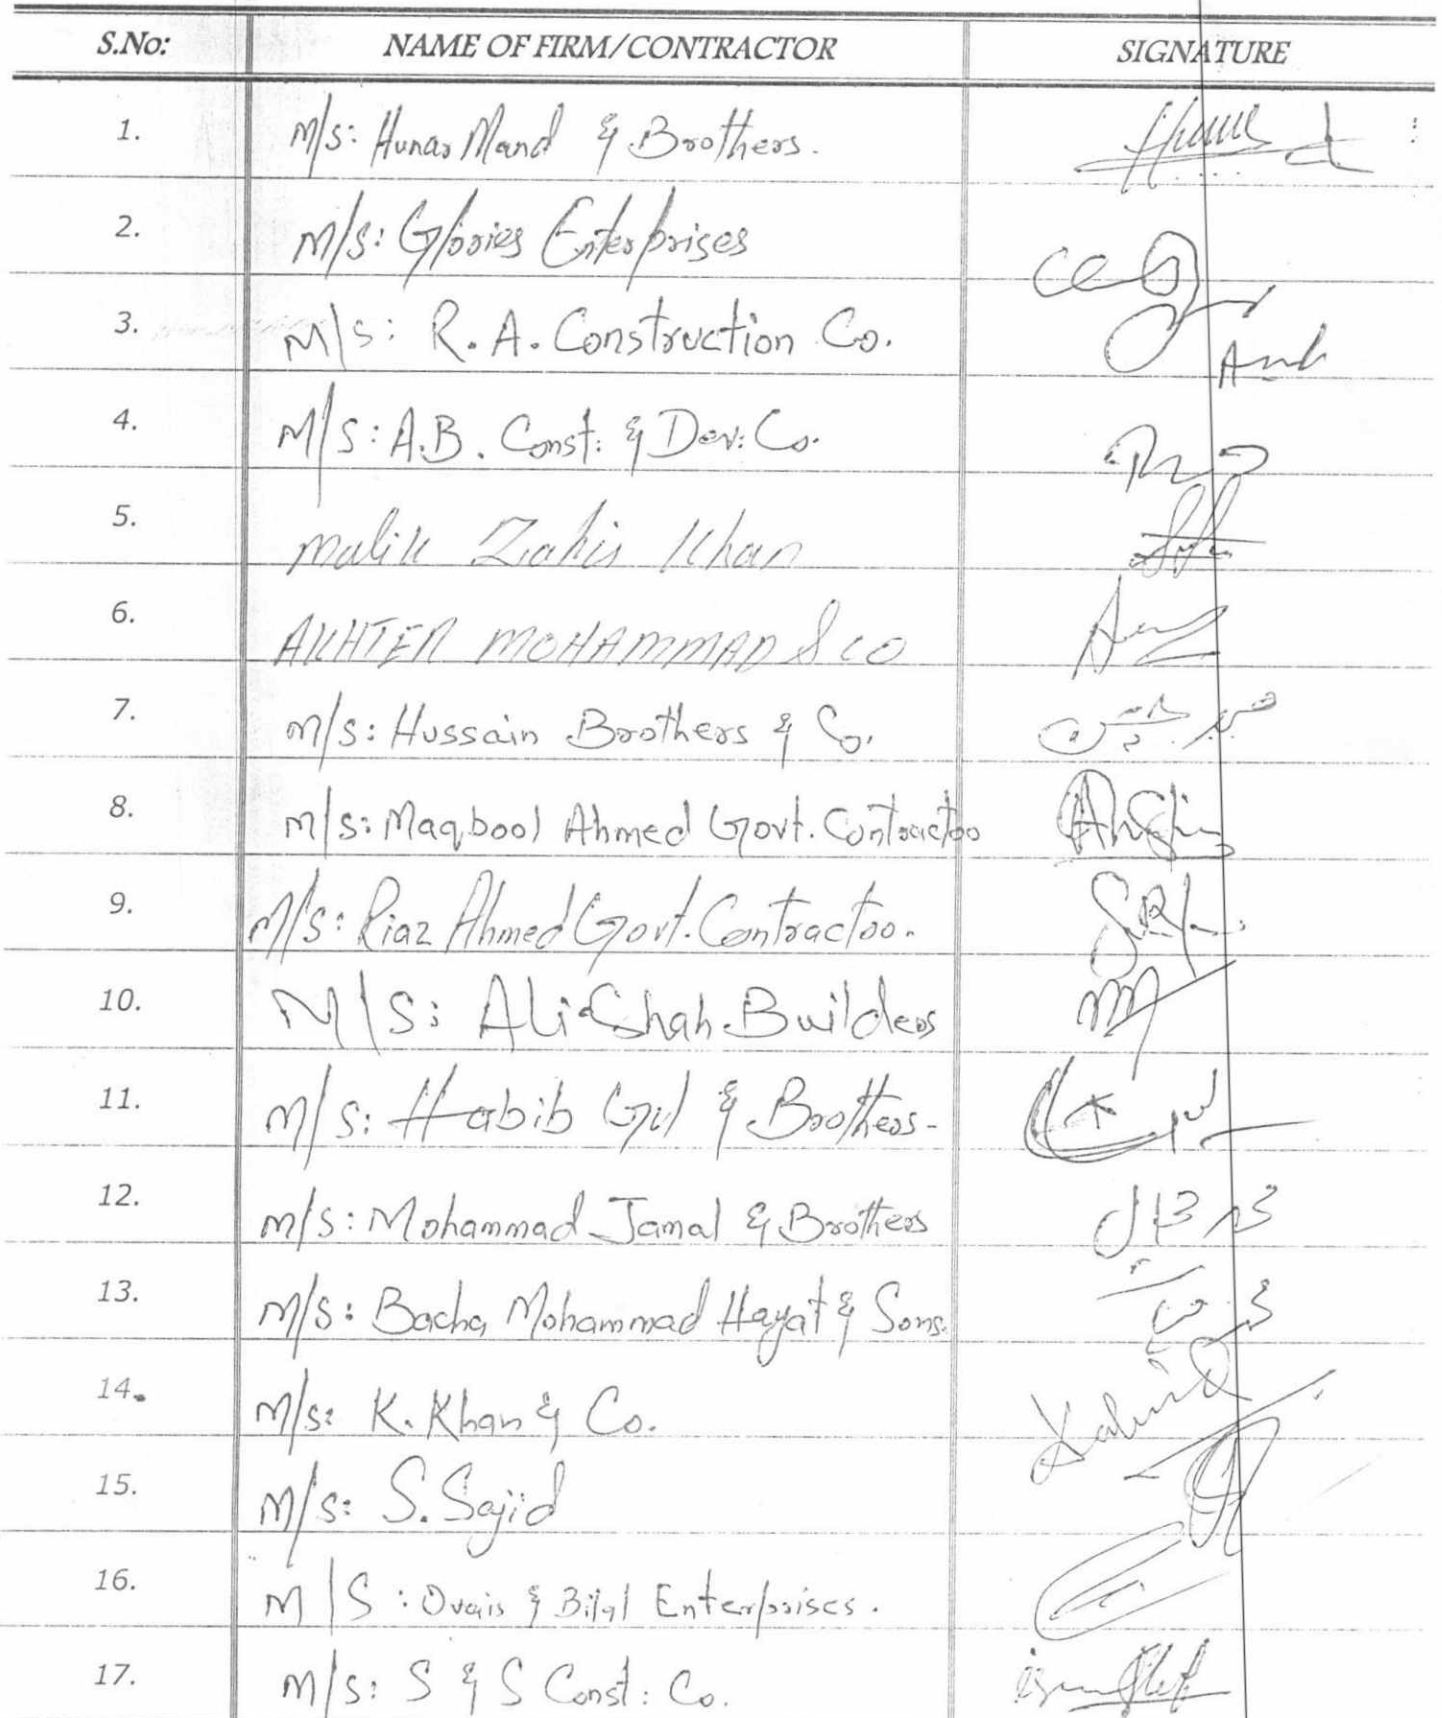 S.No: NAME OF FIRM/CONTRACTOR SIGNATURE
1. M/S: Hunar Mand & Brothers.
2. M/S: Glories Enterprises
3. M/S: R. A. Construction Co.
4. M/S: A.B. Const: & Dev: Co.
5. Malik Zahir Khan
6. AKHTER MOHAMMAD & CO
7. M/S: Hussain Brothers & Co.
8. M/S: Maqbool Ahmed Govt. Contractor
9. M/S: Riaz Ahmed Govt. Contractor.
10. M/S: Ali Shah Builders
11. M/S: Habib Gul & Brothers-
12. M/S: Mohammad Jamal & Brothers
13. M/S: Bacha Mohammad Hayat & Sons.
14. M/S: K. Khan & Co.
15. M/S: S. Sajid
16. M/S: Ovais & Bilal Enterprises.
17. M/S: S & S Const: Co.